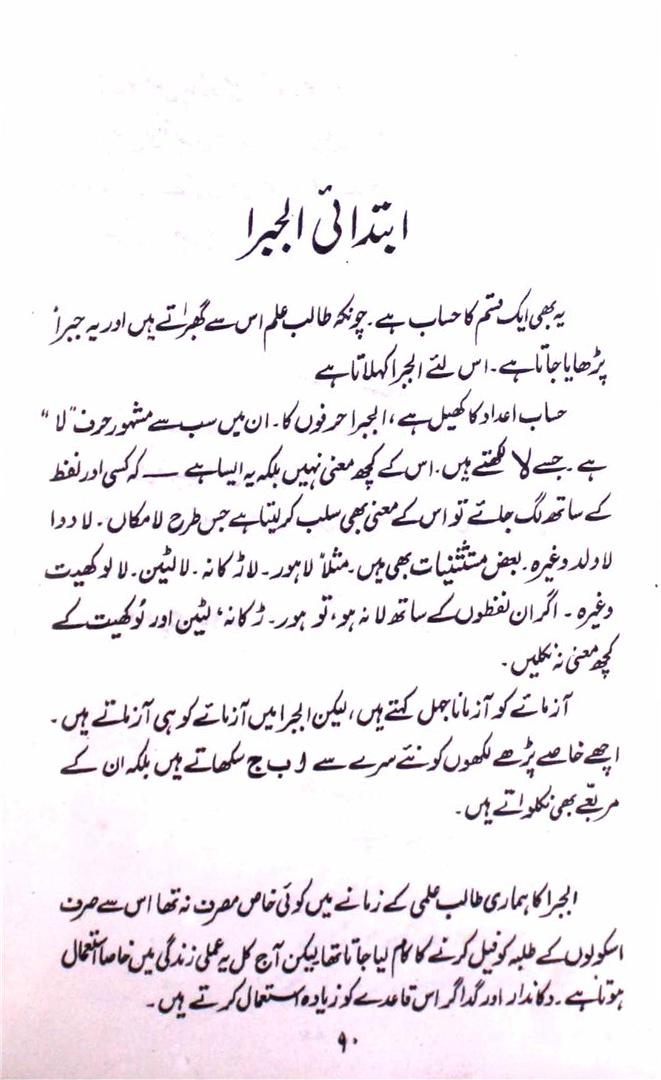 ابتدائی الجبرا
یہ بھی ایک قسم کا حساب ہے۔ چونکہ طالب علم اس سے گھبراتے ہیں اور یہ جبراً
پڑھایا جاتا ہے۔ اس لئے الجبرا کہلاتا ہے
حساب اعداد کا کھیل ہے، الجبرا حرفوں کا۔ ان میں سب سے مشہور حرف "لا"
ہے۔ جسے لا لکھتے ہیں۔ اس کے کچھ معنی نہیں بلکہ یہ ایسا ہے — کہ کسی اور لفظ
کے ساتھ لگ جائے تو اس کے معنی بھی سلب کر لیتا ہے جس طرح لامکاں۔ لا دوا
لا ولد وغیرہ۔ بعض مستثنیات بھی ہیں۔ مثلاً لاہور۔ لاڑکانہ۔ لالٹین۔ لالو کھیت
وغیرہ۔ اگر ان لفظوں کے ساتھ لا نہ ہو، تو ہور۔ ڑکانہ، لٹین اور لُو کھیت کے
کچھ معنی نہ نکلیں۔
آزمائے کو آزمانا جہل کہتے ہیں، لیکن الجبرا میں آزمائے کو ہی آزماتے ہیں۔
اچھے خاصے پڑھے لکھوں کو نئے سرے سے ا ب ج سکھاتے ہیں بلکہ ان کے
مربعّے بھی نکلواتے ہیں۔
الجبرا کا ہماری طالب علمی کے زمانے میں کوئی خاص مصرف نہ تھا اس سے صرف
اسکولوں کے طلبہ کو فیل کرنے کا کام لیا جاتا تھا لیکن آج کل یہ عملی زندگی میں خاصا استعمال
ہوتا ہے۔ دکاندار اور گداگر اس قاعدے کو زیادہ استعمال کرتے ہیں۔
۹۰